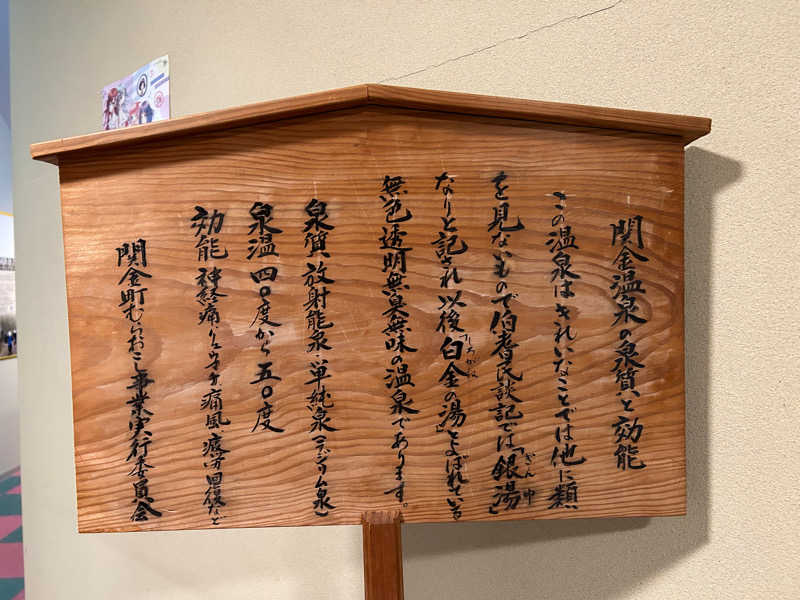 関金温泉の泉質と効能
この温泉はきれいなことでは他に類
を見ないもので伯耆民談記では「銀湯」
なりと記され以後「白金の湯」とよばれている
無色透明無臭無味の温泉であります。
泉質 放射能泉・単純泉(ラジウム泉)
泉温 四〇度から五〇度
効能 神経痛・リュウマチ・痛風・疲労回復など
関金町むらおこし事業実行委員会